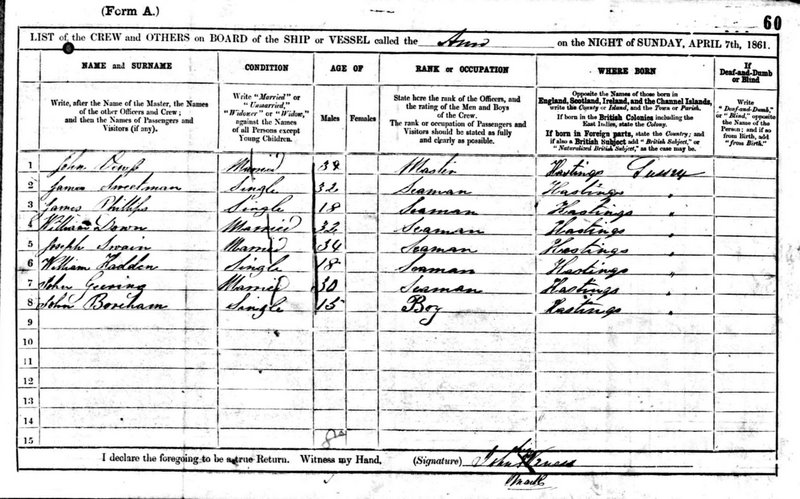 (Form A.)
60
LIST of the CREW and OTHERS on BOARD of the SHIP or VESSEL called the Ann on the NIGHT of SUNDAY, APRIL 7th, 1861.
NAME and SURNAME
Write, after the Name of the Master, the Names
of the other Officers and Crew;
and then the Names of Passengers and
Visitors (if any).
CONDITION
Write "Married" or
"Unmarried,"
"Widower" or "Widow,"
against the Names
of all Persons except
Young Children.
AGE OF
Males
Females
RANK or OCCUPATION
State here the rank of the Officers, and
the rating of the Men and Boys
of the Crew.
The rank or occupation of Passengers and
Visitors should be stated as fully
and clearly as possible.
WHERE BORN
Opposite the Names of those born in
England, Scotland, Ireland, and the Channel Islands,
write the County or Island, and the Town or Parish.
If born in the British Colonies including the
East Indies, state the Colony.
If born in Foreign parts, state the Country; and
if also a British Subject add "British Subject," or
"Naturalized British Subject," as the case may be.
If
Deaf-and-Dumb
or Blind
Write
"Deaf-and-Dumb,"
or "Blind," opposite
the Name of the
Person; and if so
from Birth, add
"from Birth."
1 John Married 34 Master Hastings Sussex
2 James Sweetman Single 32 Seaman Hastings "
3 James Phillips Single 18 Seaman Hastings "
4 William Down Married 32 Seaman Hastings "
5 Joseph Swain Married 34 Seaman Hastings "
6 William Hadden Single 18 Seaman Hastings "
7 John Geering Married 30 Seaman Hastings "
8 John Boreham Single 15 Boy Hastings "
9
10
11
12
13
14
15
I declare the foregoing to be a true Return. Witness my Hand, (Signature) John